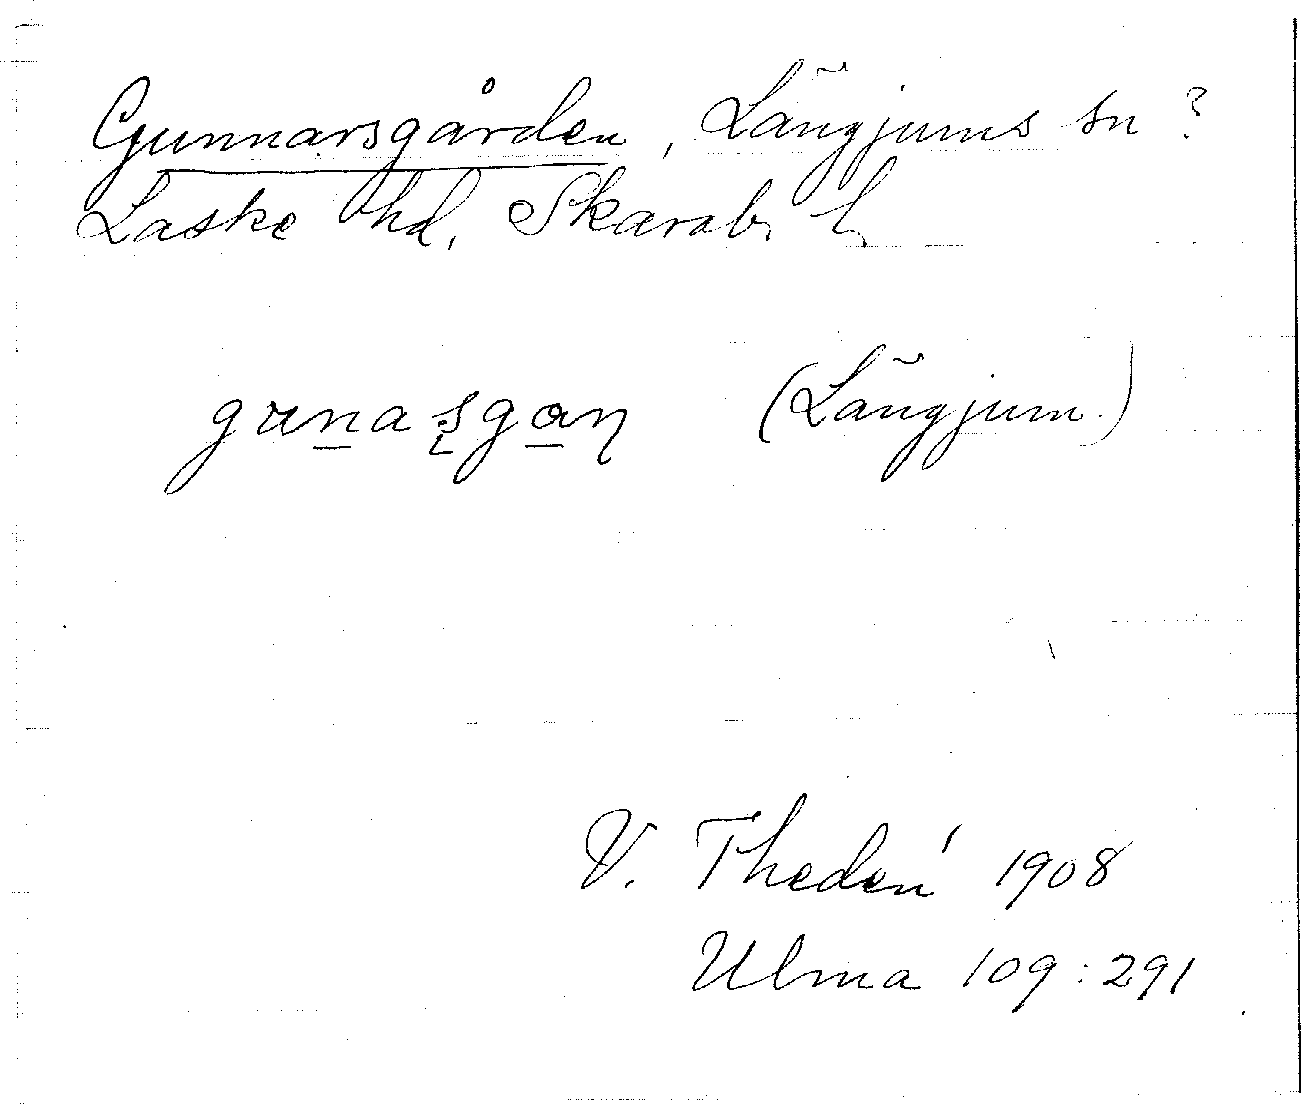 Gunnarsgården, Längjums sn ?
Laske hd, Skarab. l.
gunasgan (Längjum.)
V. Thedén 1908
Ulma 109:291